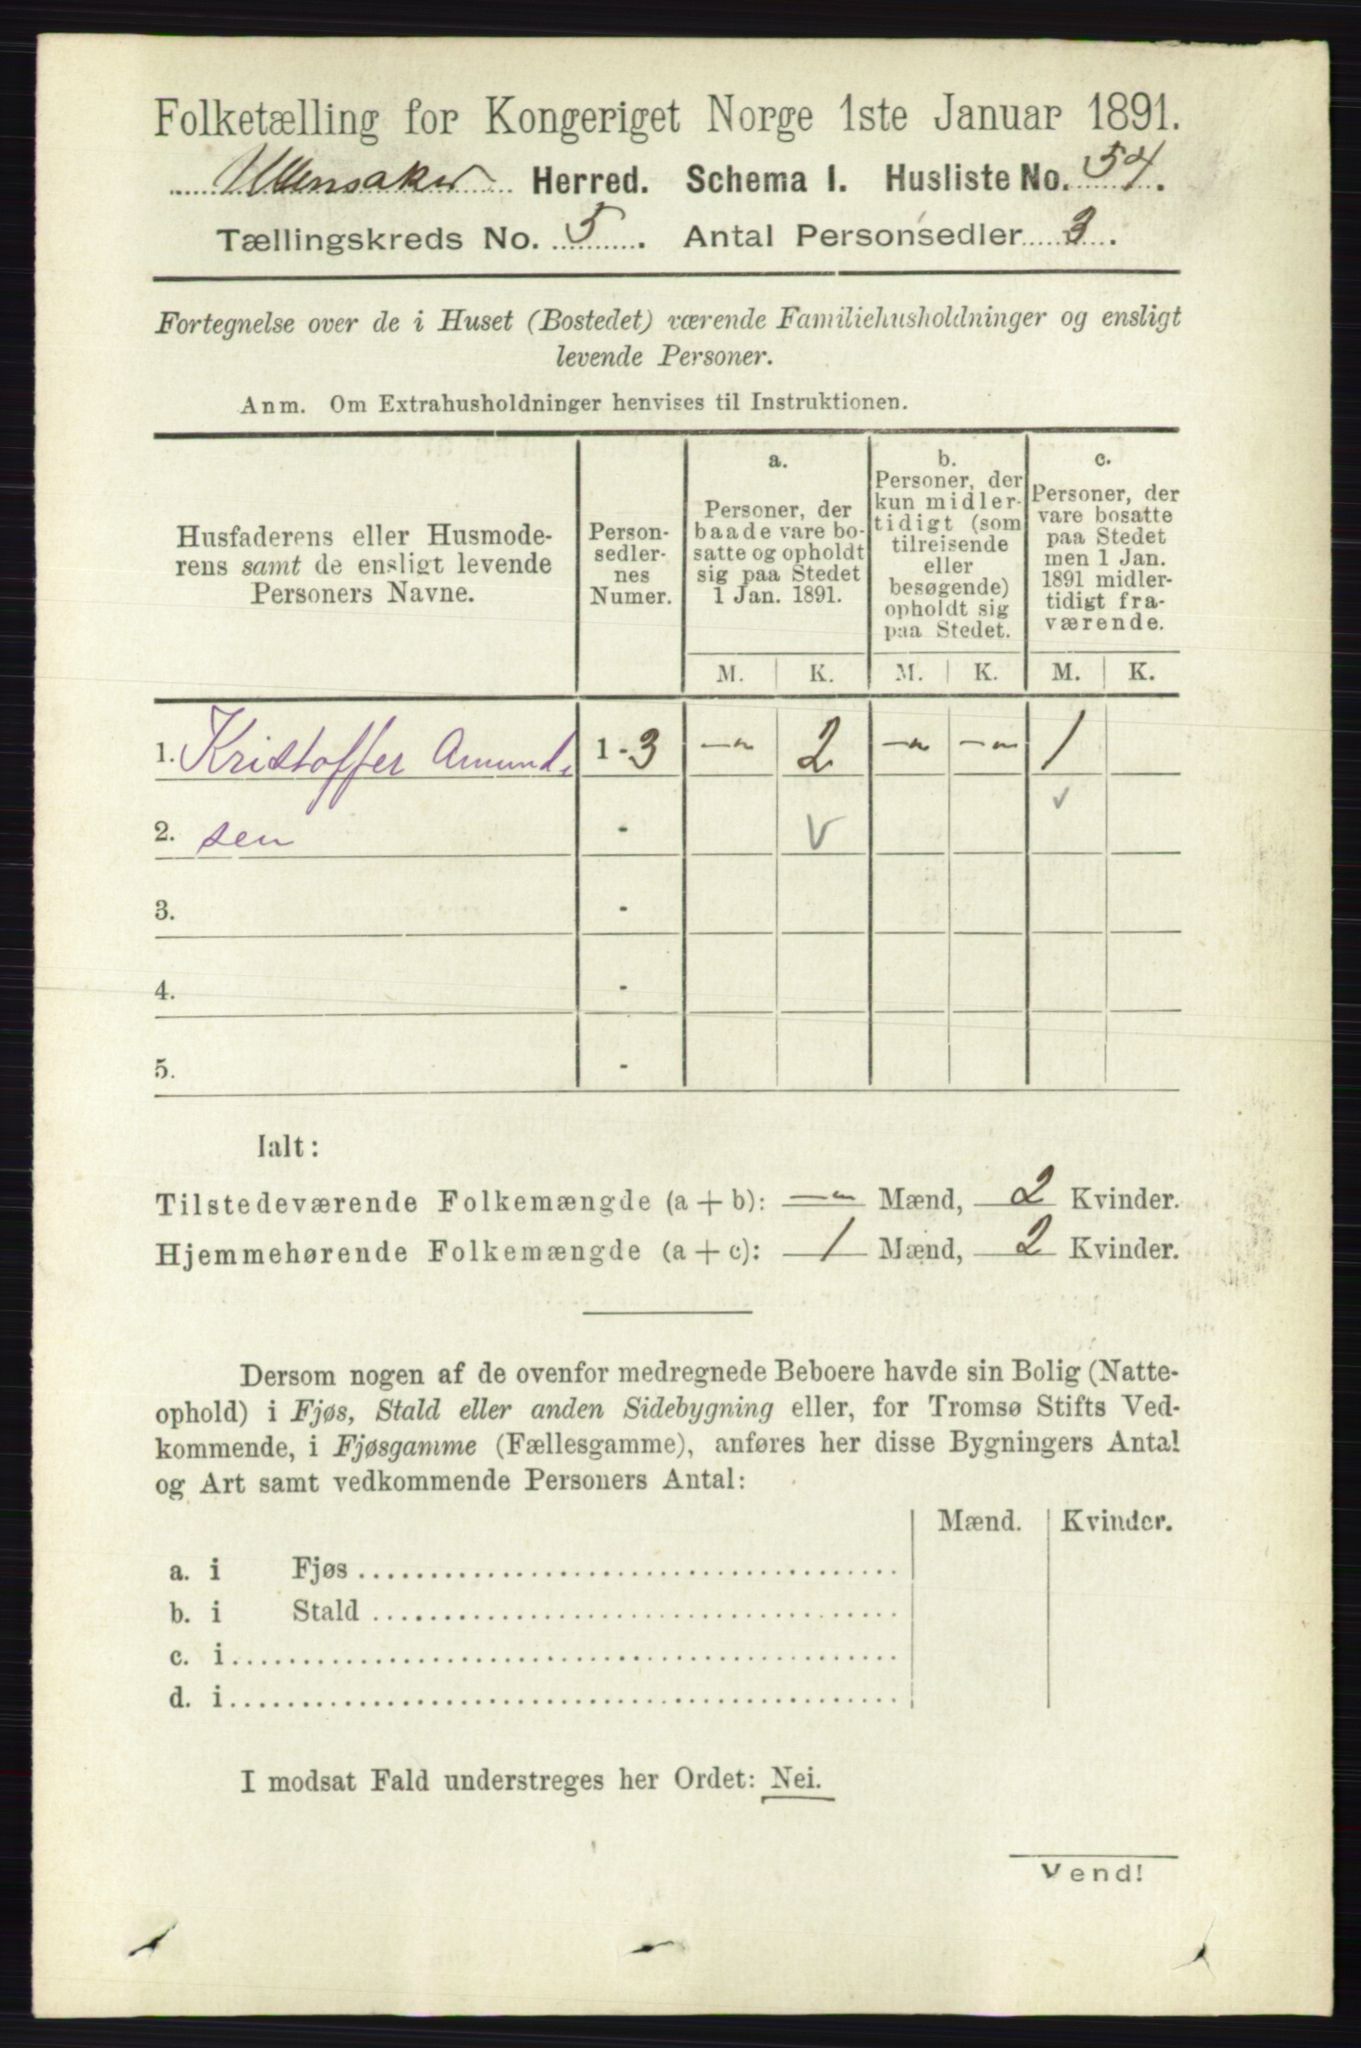 Folketælling for Kongeriget Norge 1ste Januar 1891.
Ullensaker Herred. Schema I. Husliste No. 54.
Tællingskreds No. 5. Antal Personsedler 3.
Fortegnelse over de i Huset (Bostedet) værende Familiehusholdninger og ensligt
levende Personer.
Anm. Om Extrahusholdninger henvises til Instruktionen.
Husfaderens eller Husmode-
rens samt de ensligt levende
Personers Navne.
Person-
sedler-
nes
Numer.
a.
Personer, der
baade vare bo-
satte og opholdt
sig paa Stedet
1 Jan. 1891.
b.
Personer, der
kun midler-
tidigt (som
tilreisende
eller
besøgende)
opholdt sig
paa Stedet.
c.
Personer, der
vare bosatte
paa Stedet
men 1 Jan.
1891 midler-
tidigt fra-
værende.
M. K. M. K. M. K.
1. Kristoffer Amund- 1 - 3 — 2 — — 1
2. sen - V ✓
3. -
4. -
5. -
Ialt:
Tilstedeværende Folkemængde (a + b): — Mænd, 2 Kvinder.
Hjemmehørende Folkemængde (a + c): 1 Mænd, 2 Kvinder.
Dersom nogen af de ovenfor medregnede Beboere havde sin Bolig (Natte-
ophold) i Fjøs, Stald eller anden Sidebygning eller, for Tromsø Stifts Ved-
kommende, i Fjøsgamme (Fællesgamme), anføres her disse Bygningers Antal
og Art samt vedkommende Personers Antal:
Mænd. Kvinder.
a. i Fjøs
b. i Stald
c. i
d. i
I modsat Fald understreges her Ordet: Nei.
Vend!